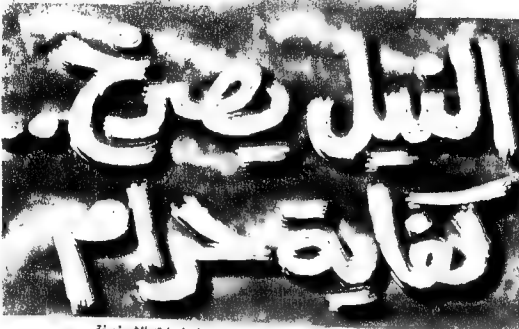 النيل يصرخ..
كفاية حرام